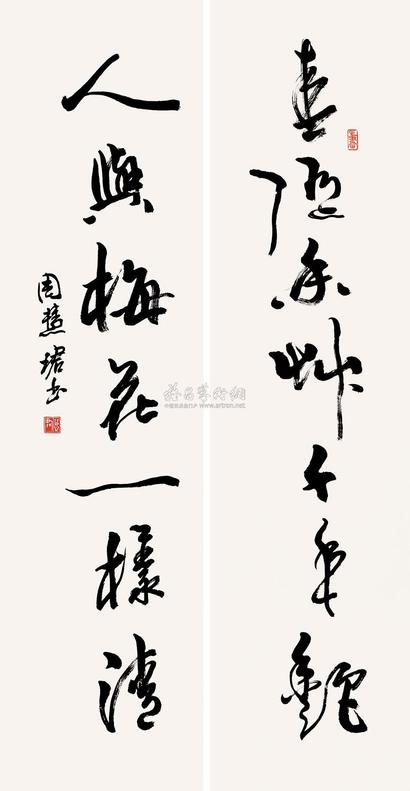 春隨香艸千年艷
人與梅花一樣清
周慧珺书
雅昌藝術網
www.artron.net